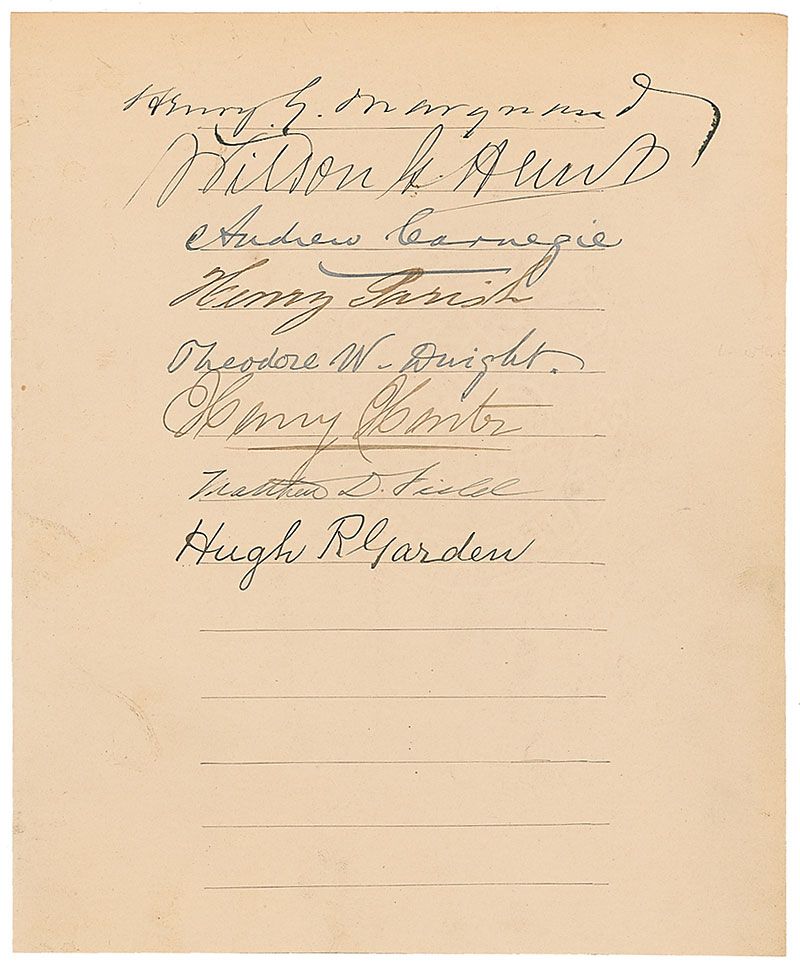 Henry G. Marquand
Wilson G. Hunt
Andrew Carnegie
Henry Parish
Theodore W. Dwight.
Harry
D. Field
Hugh R Garden